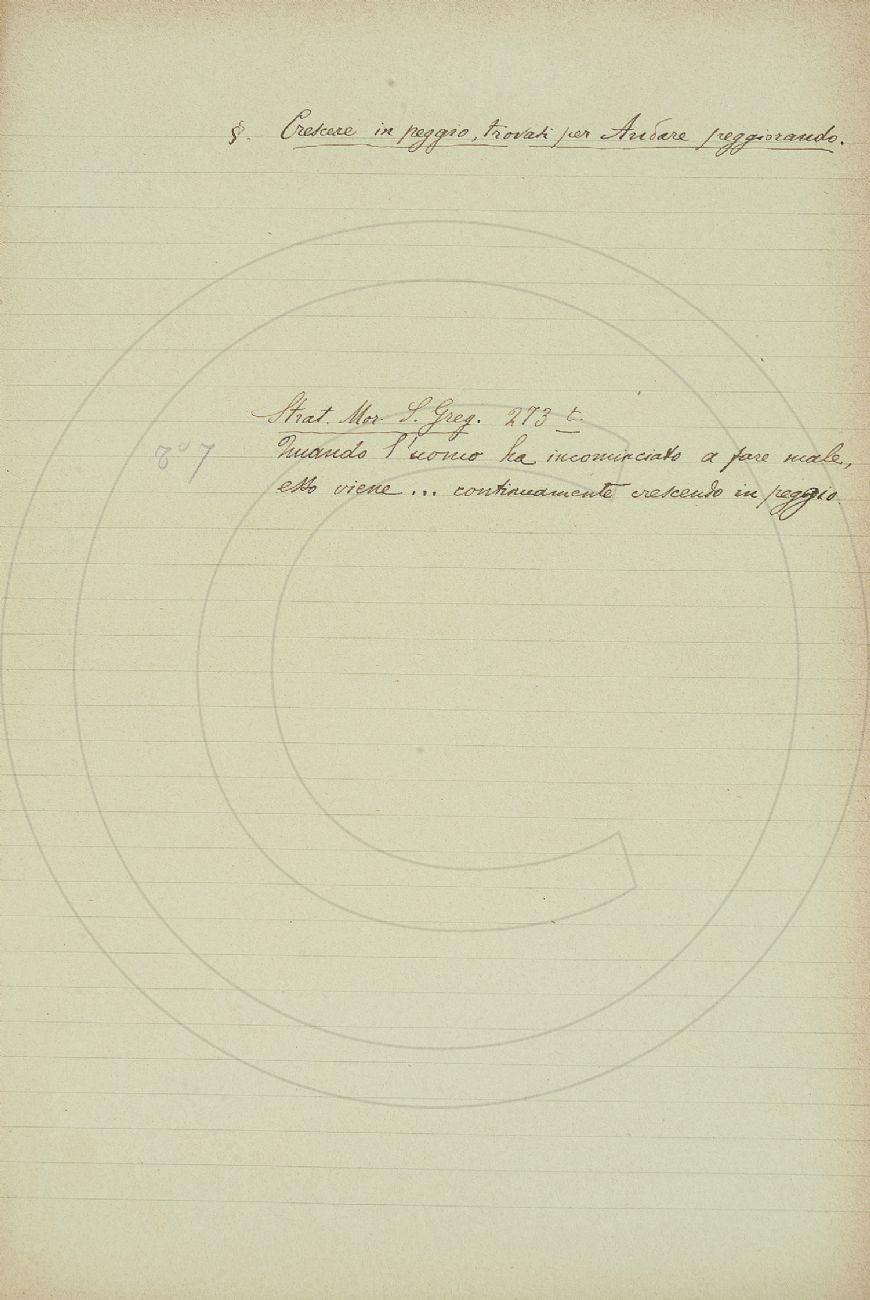 §. Crescere in peggio, trovasi per Andare peggiorando.
Strat. Mor. S. Greg. 273 t.
Quando l'uomo ha incominciato a fare male,
esso viene ... continuamente crescendo in peggio